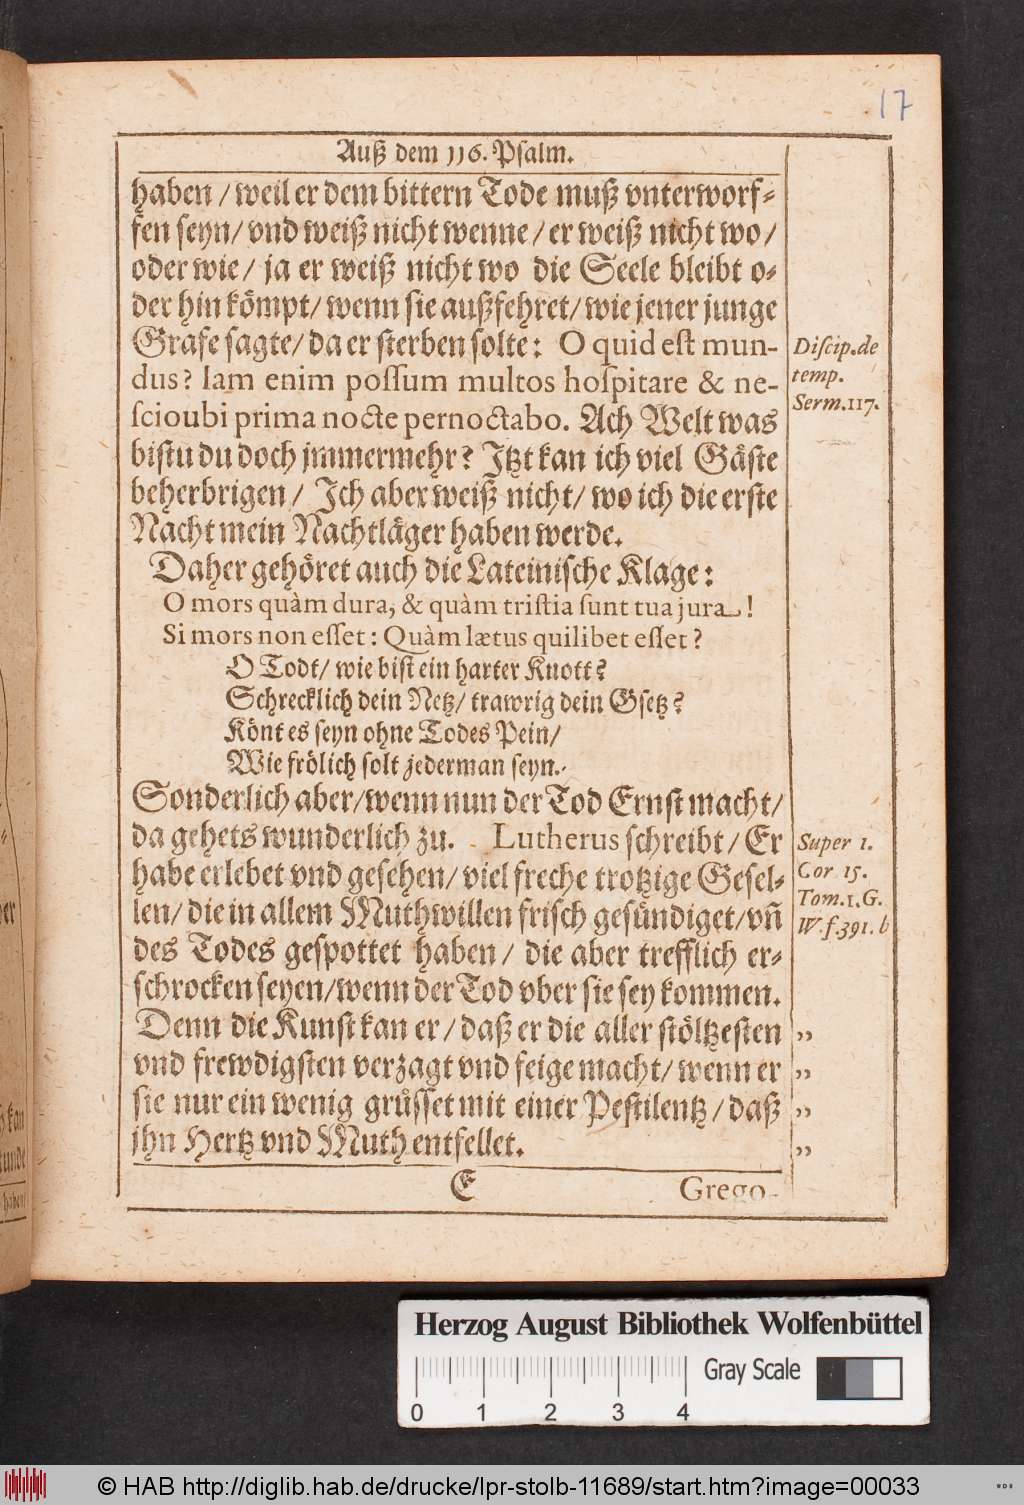 17
Auß dem 116. Psalm.
haben / weil er dem bittern Tode muß vnterworf⸗
fen seyn/ vnd weiß nicht wenne / er weiß nicht wo /
oder wie / ja er weiß nicht wo die Seele bleibt o⸗
der hin kömpt/ wenn sie außfehret/ wie jener junge
Grafe sagte/ da er sterben solte: O quid est mun-
dus? Iam enim possum multos hospitare & ne-
scioubi prima nocte pernoctabo. Ach Welt was
bistu du doch jmmermehr? Jtzt kan ich viel Gäste
beherbrigen / Jch aber weiß nicht/ wo ich die erste
Nacht mein Nachtläger haben werde.
Discip. de
temp.
Serm. 117.
Daher gehöret auch die Lateinische Klage:
O mors quàm dura, & quàm tristia sunt tua jura!
Si mors non esset: Quàm lætus quilibet esset?
O Todt/ wie bist ein harter Knott?
Schrecklich dein Netz/ trawrig dein Gsetz?
Könt es seyn ohne Todes Pein/
Wie frölich solt jederman seyn.
Sonderlich aber/wenn nun der Tod Ernst macht/
da gehets wunderlich zu. Lutherus schreibt / Er
habe erlebet vnd gesehen/ viel freche trotzige Gesel⸗
len/ die in allem Muthwillen frisch gesündiget/vñ
des Todes gespottet haben / die aber trefflich er⸗
schrocken seyen/wenn der Tod vber sie sey kommen.
Super 1.
Cor 15.
Tom. 1. G.
W. f. 391. b
Denn die Kunst kan er / daß er die aller stöltzesten „
vnd frewdigsten verzagt vnd feige macht/ wenn er „
sie nur ein wenig grüsset mit einer Pestilentz / daß „
jhn Hertz vnd Muth entfellet. „
E
Grego-
kan
haben
Herzog August Bibliothek Wolfenbüttel
Gray Scale
0 1 2 3 4
© HAB http://diglib.hab.de/drucke/lpr-stolb-11689/start.htm?image=00033